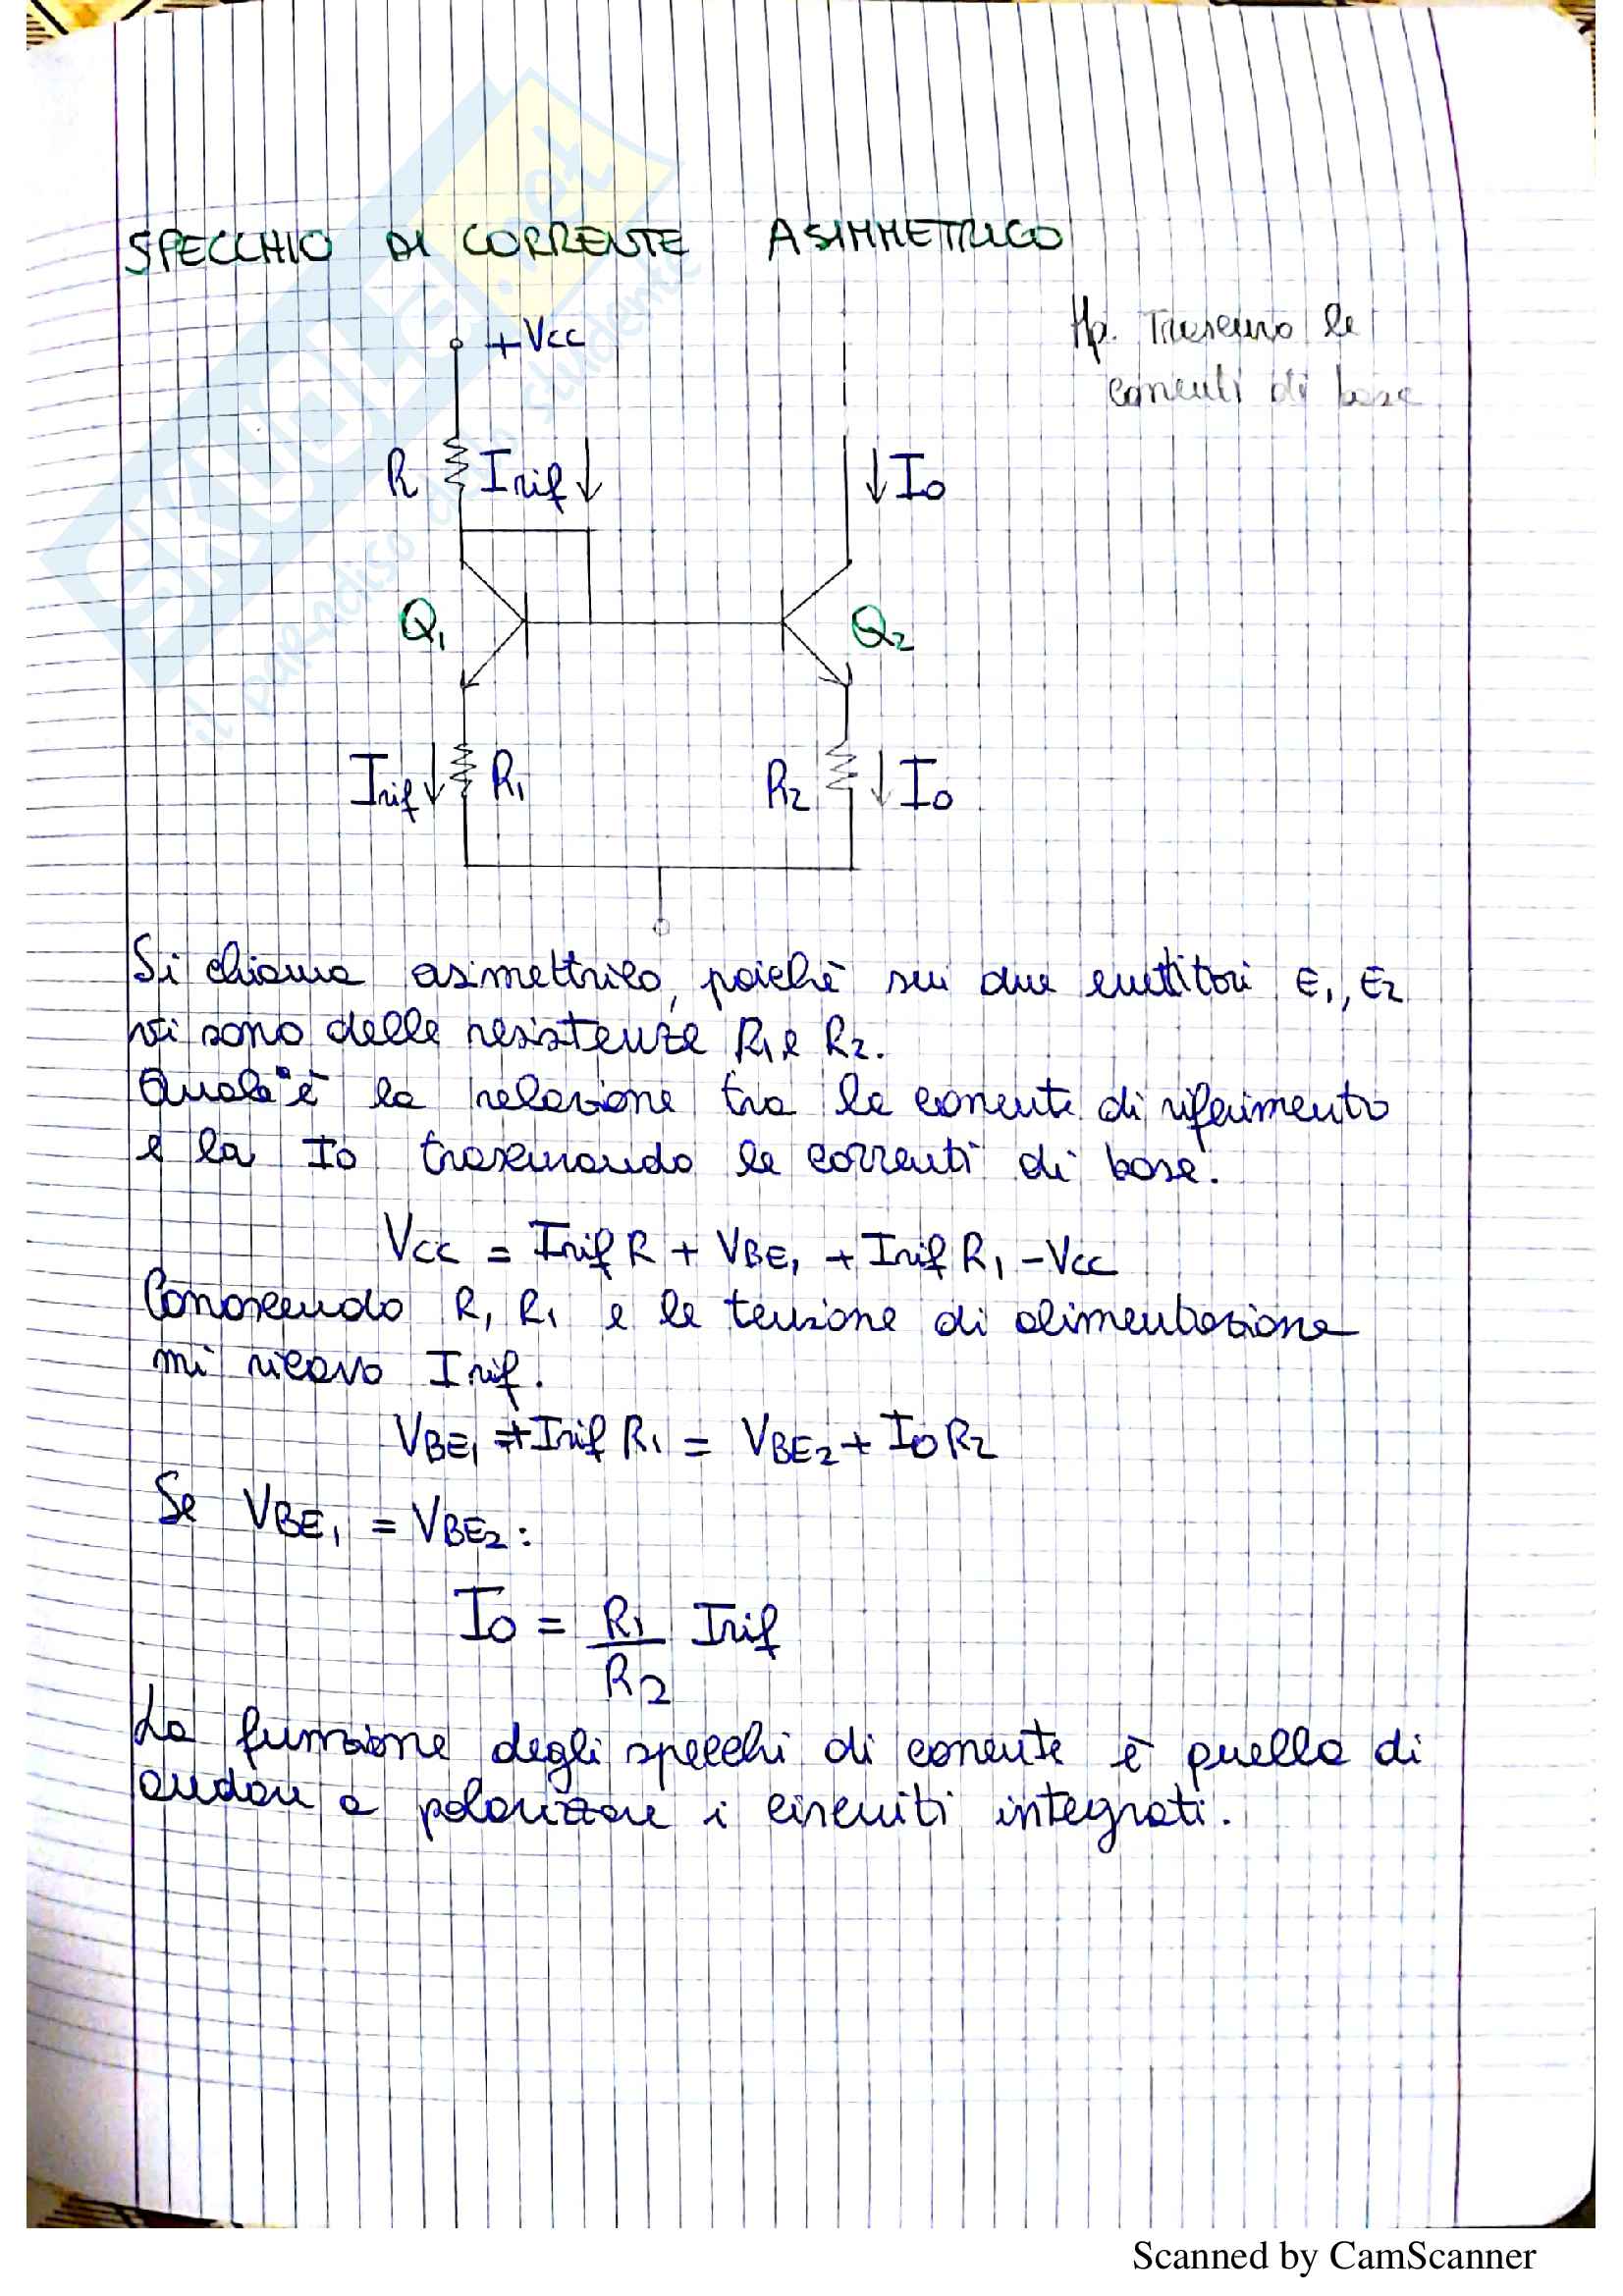 SPECCHIO DI CORRENTE ASIMMETRICO
+Vcc
Hp. Trascuro le
correnti di base
R Irif ↓ ↓ Io
Q1 Q2
Irif ↓ R1 R2 ↓ Io
Si chiama asimettrico, poichè sui due emettitori E1, E2
vi sono delle resistenze R1 e R2.
Qual'è la relazione tra la corrente di riferimento
e la Io trascurando le correnti di base.
Vcc = Irif R + VBE1 + Irif R1 - Vcc
Conoscendo R, R1 e la tensione di alimentazione
mi ricavo Irif.
VBE1 + Irif R1 = VBE2 + Io R2
Se VBE1 = VBE2:
Io = R1/R2 Irif
La funzione degli specchi di corrente è quella di
andare a polarizzare i circuiti integrati.
SKUOLA.net
il paradiso dello studente
Scanned by CamScanner